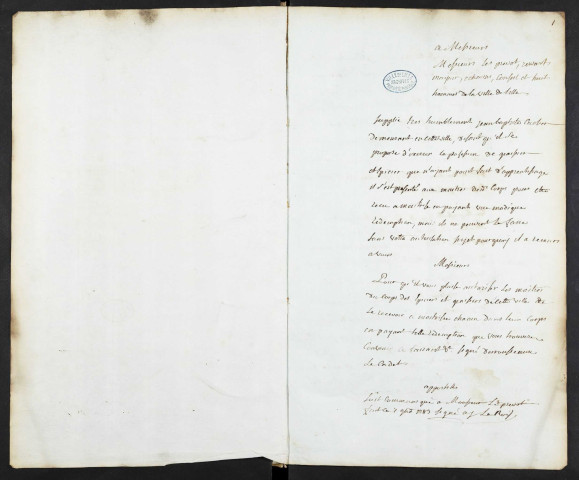 1
a Messieurs
Messieurs les prevot, rewart,
mayeur, echevins, Conseil et huit
hommes de la ville de Lille
Supplie tres humblement jean baptiste
demeurant en cette ville, disant qu'il se
propose d'exercer la profession de graissier
et Epicier que n'ayant point fait d'apprentissage
il s'est presenté aux maitres dudit Corps pour etre
recu a maitrise en payant une modique
redemption, mais ils ne peuvent le faire
sans votre autorisation sujet pourquoy il a recours
a vous
Messieurs
Pour qu'il vous plaise autoriser les maitres
du corps des Epiciers et graissiers de cette ville de
le recevoir a maitrise chacun dans leur Corps
en payant telle redemption que vous trouverez
Convenir signé
le Cadet
appostille
soit Communiqué a Monsieur Le prevot
fait ce 7 1783 signé